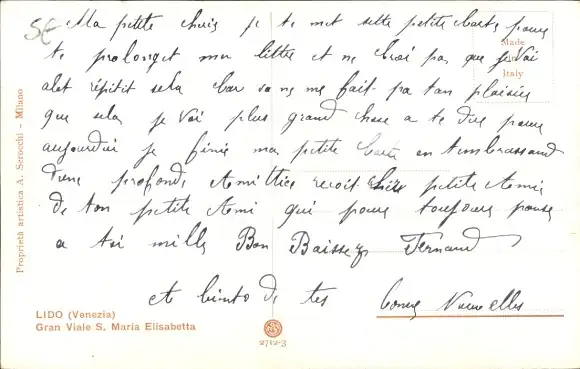 5€
Ma petite cheris je te met sette petite carte pour
te prolonget mon littre et ne croi pas que je vai
alet répitit sela car sa ne me fait pa tan plaisir
que sela je vai plus grand chose a te dire pour
aujourdui je finie ma petite carte en t'embrassand
d'une profonde Amittiee recoit chére petite Amie
de ton petite Ami qui pour toujours panse
a toi mille Bon Baisser Fernand
et biento de tes bonne Nouvelles
Made
in
Italy
Proprietà artistica A. Scrocchi - Milano
LIDO (Venezia)
Gran Viale S. Maria Elisabetta
2712-3